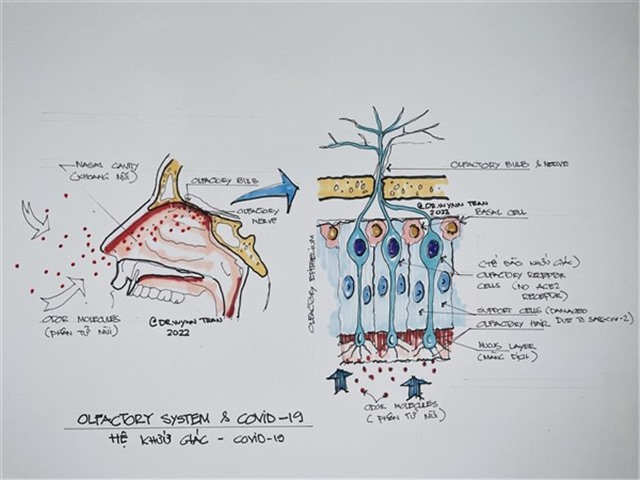 NASAL CAVITY
(KHOANG MŨI)
OLFACTORY BULB
OLFACTORY
NERVE
ODOR MOLECULES
(PHÂN TỬ MŨI)
@DR.WYNN TRAN
2022
OLFACTORY BULB & NERVE
@DR.WYNN TRAN
2022
BASAL CELL
OLFACTORY EPITHELIUM
(TẾ BÀO KHỨU GIÁC)
OLFACTORY RECEPTOR
CELLS (NO ACE2
RECEPTOR)
SUPPORT CELLS (DAMAGED
DUE TO SARSCOV-2)
OLFACTORY HAIR
MUCUS LAYER
(MÀNG DỊCH)
ODOR MOLECULES
(PHÂN TỬ MŨI)
OLFACTORY SYSTEM & COVID-19
HỆ KHỨU GIÁC - COVID-19